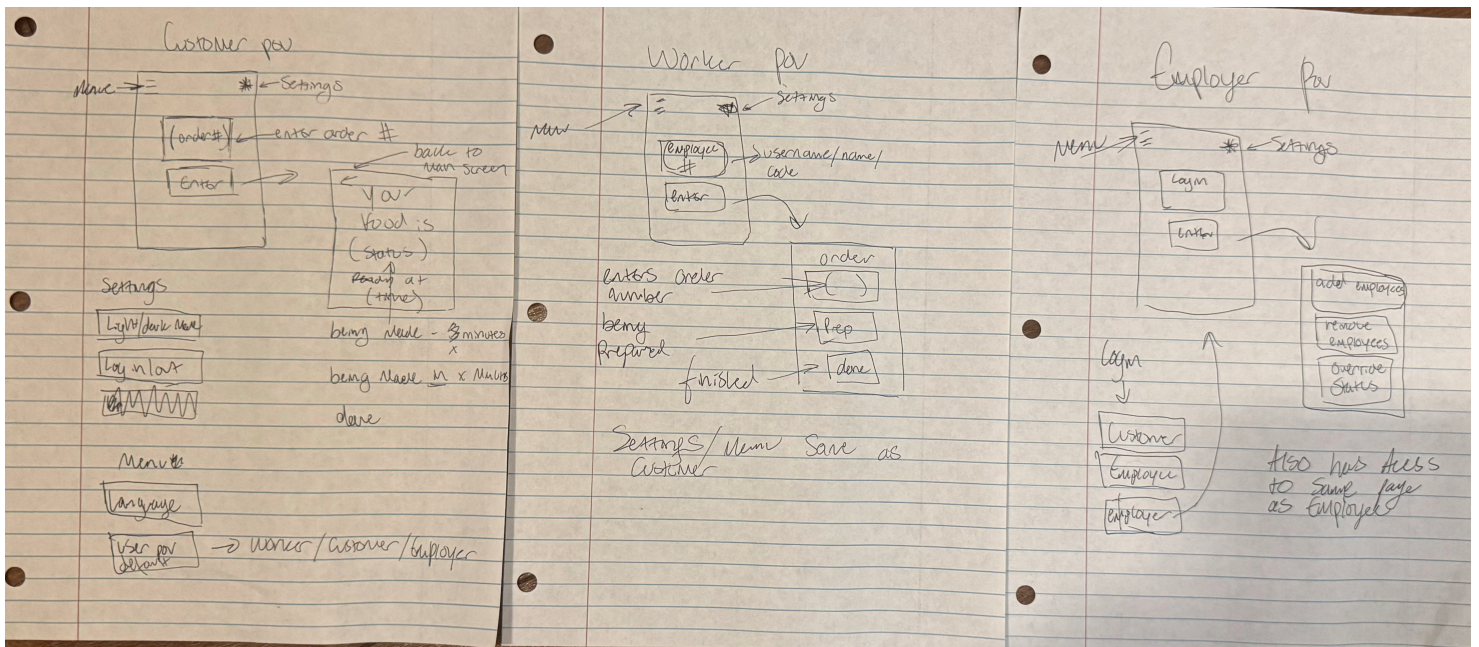 Customer pov
Menue
Settings
(order#)
enter order #
back to
main screen
Enter
Your
Food is
(Status)
Ready at
(time)
Settings
Light/dark Mode
Log in/out
being Made - minutes
x
being Made in x Minutes
done
Menu
Language
User pov
default
Worker/Customer/Employer
Worker Pov
Settings
employee
#
username/name/
code
enter
order
enters order
number
( )
being
Prepared
Prep
finished
done
Settings/Menu Same as
Customer
Employer Pov
Menu
Settings
Login
Enter
add employees
remove
employees
override
Status
Login
Customer
Employee
employer
Also has Acess
to Same page
as Employee